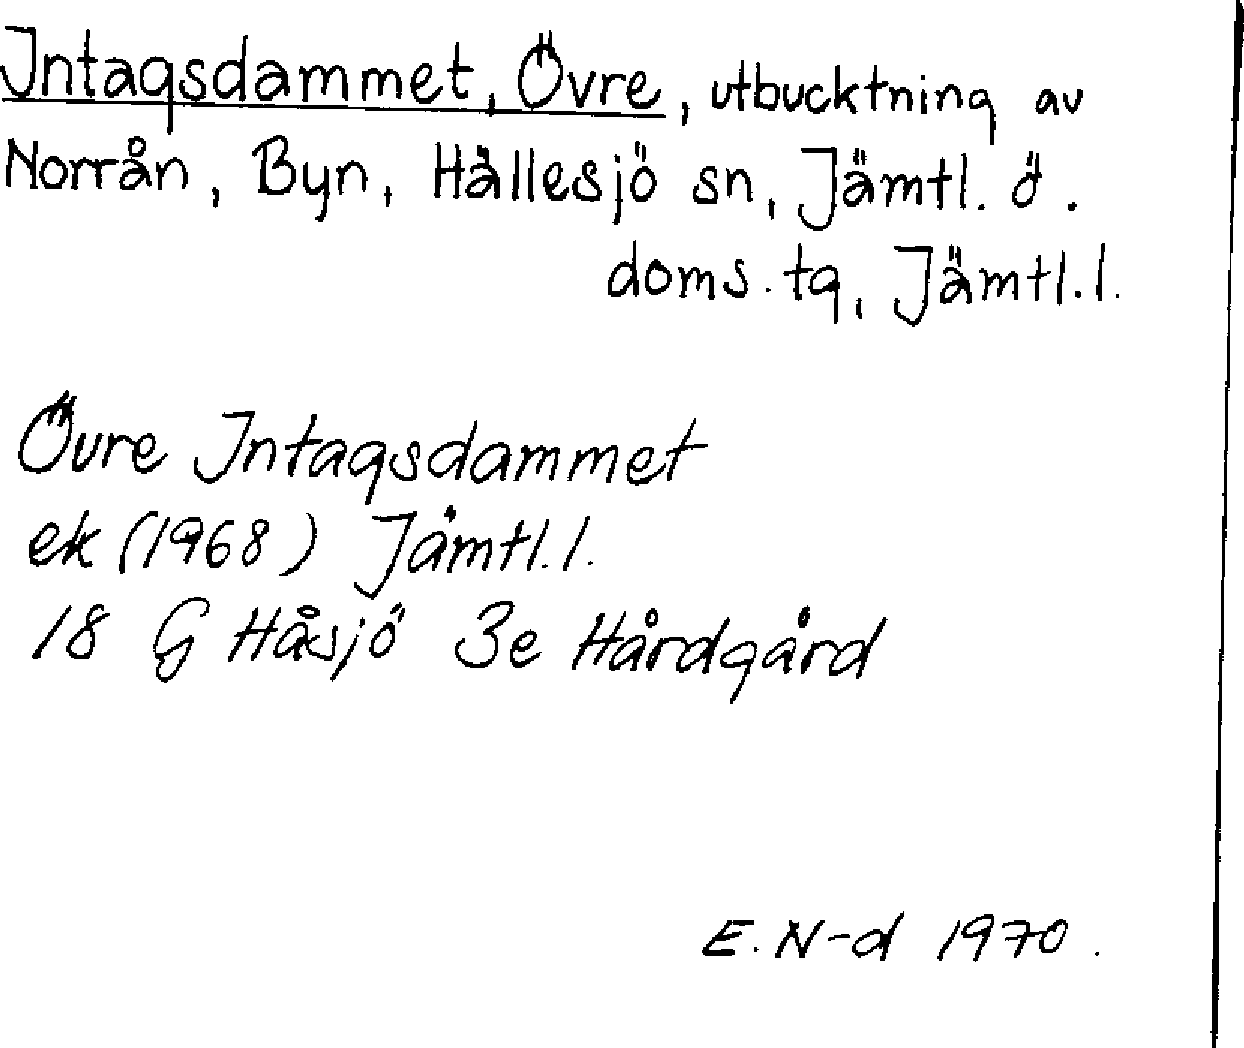 Intagsdammet, Övre, utbucktning av
Norrån, Byn, Hällesjö sn, Jämtl. ö.
doms. tg, Jämtl. l.
Övre Intagsdammet
ek (1968) Jämtl. l.
18 G Håsjö 3e Hårdgård
E. N-d 1970.